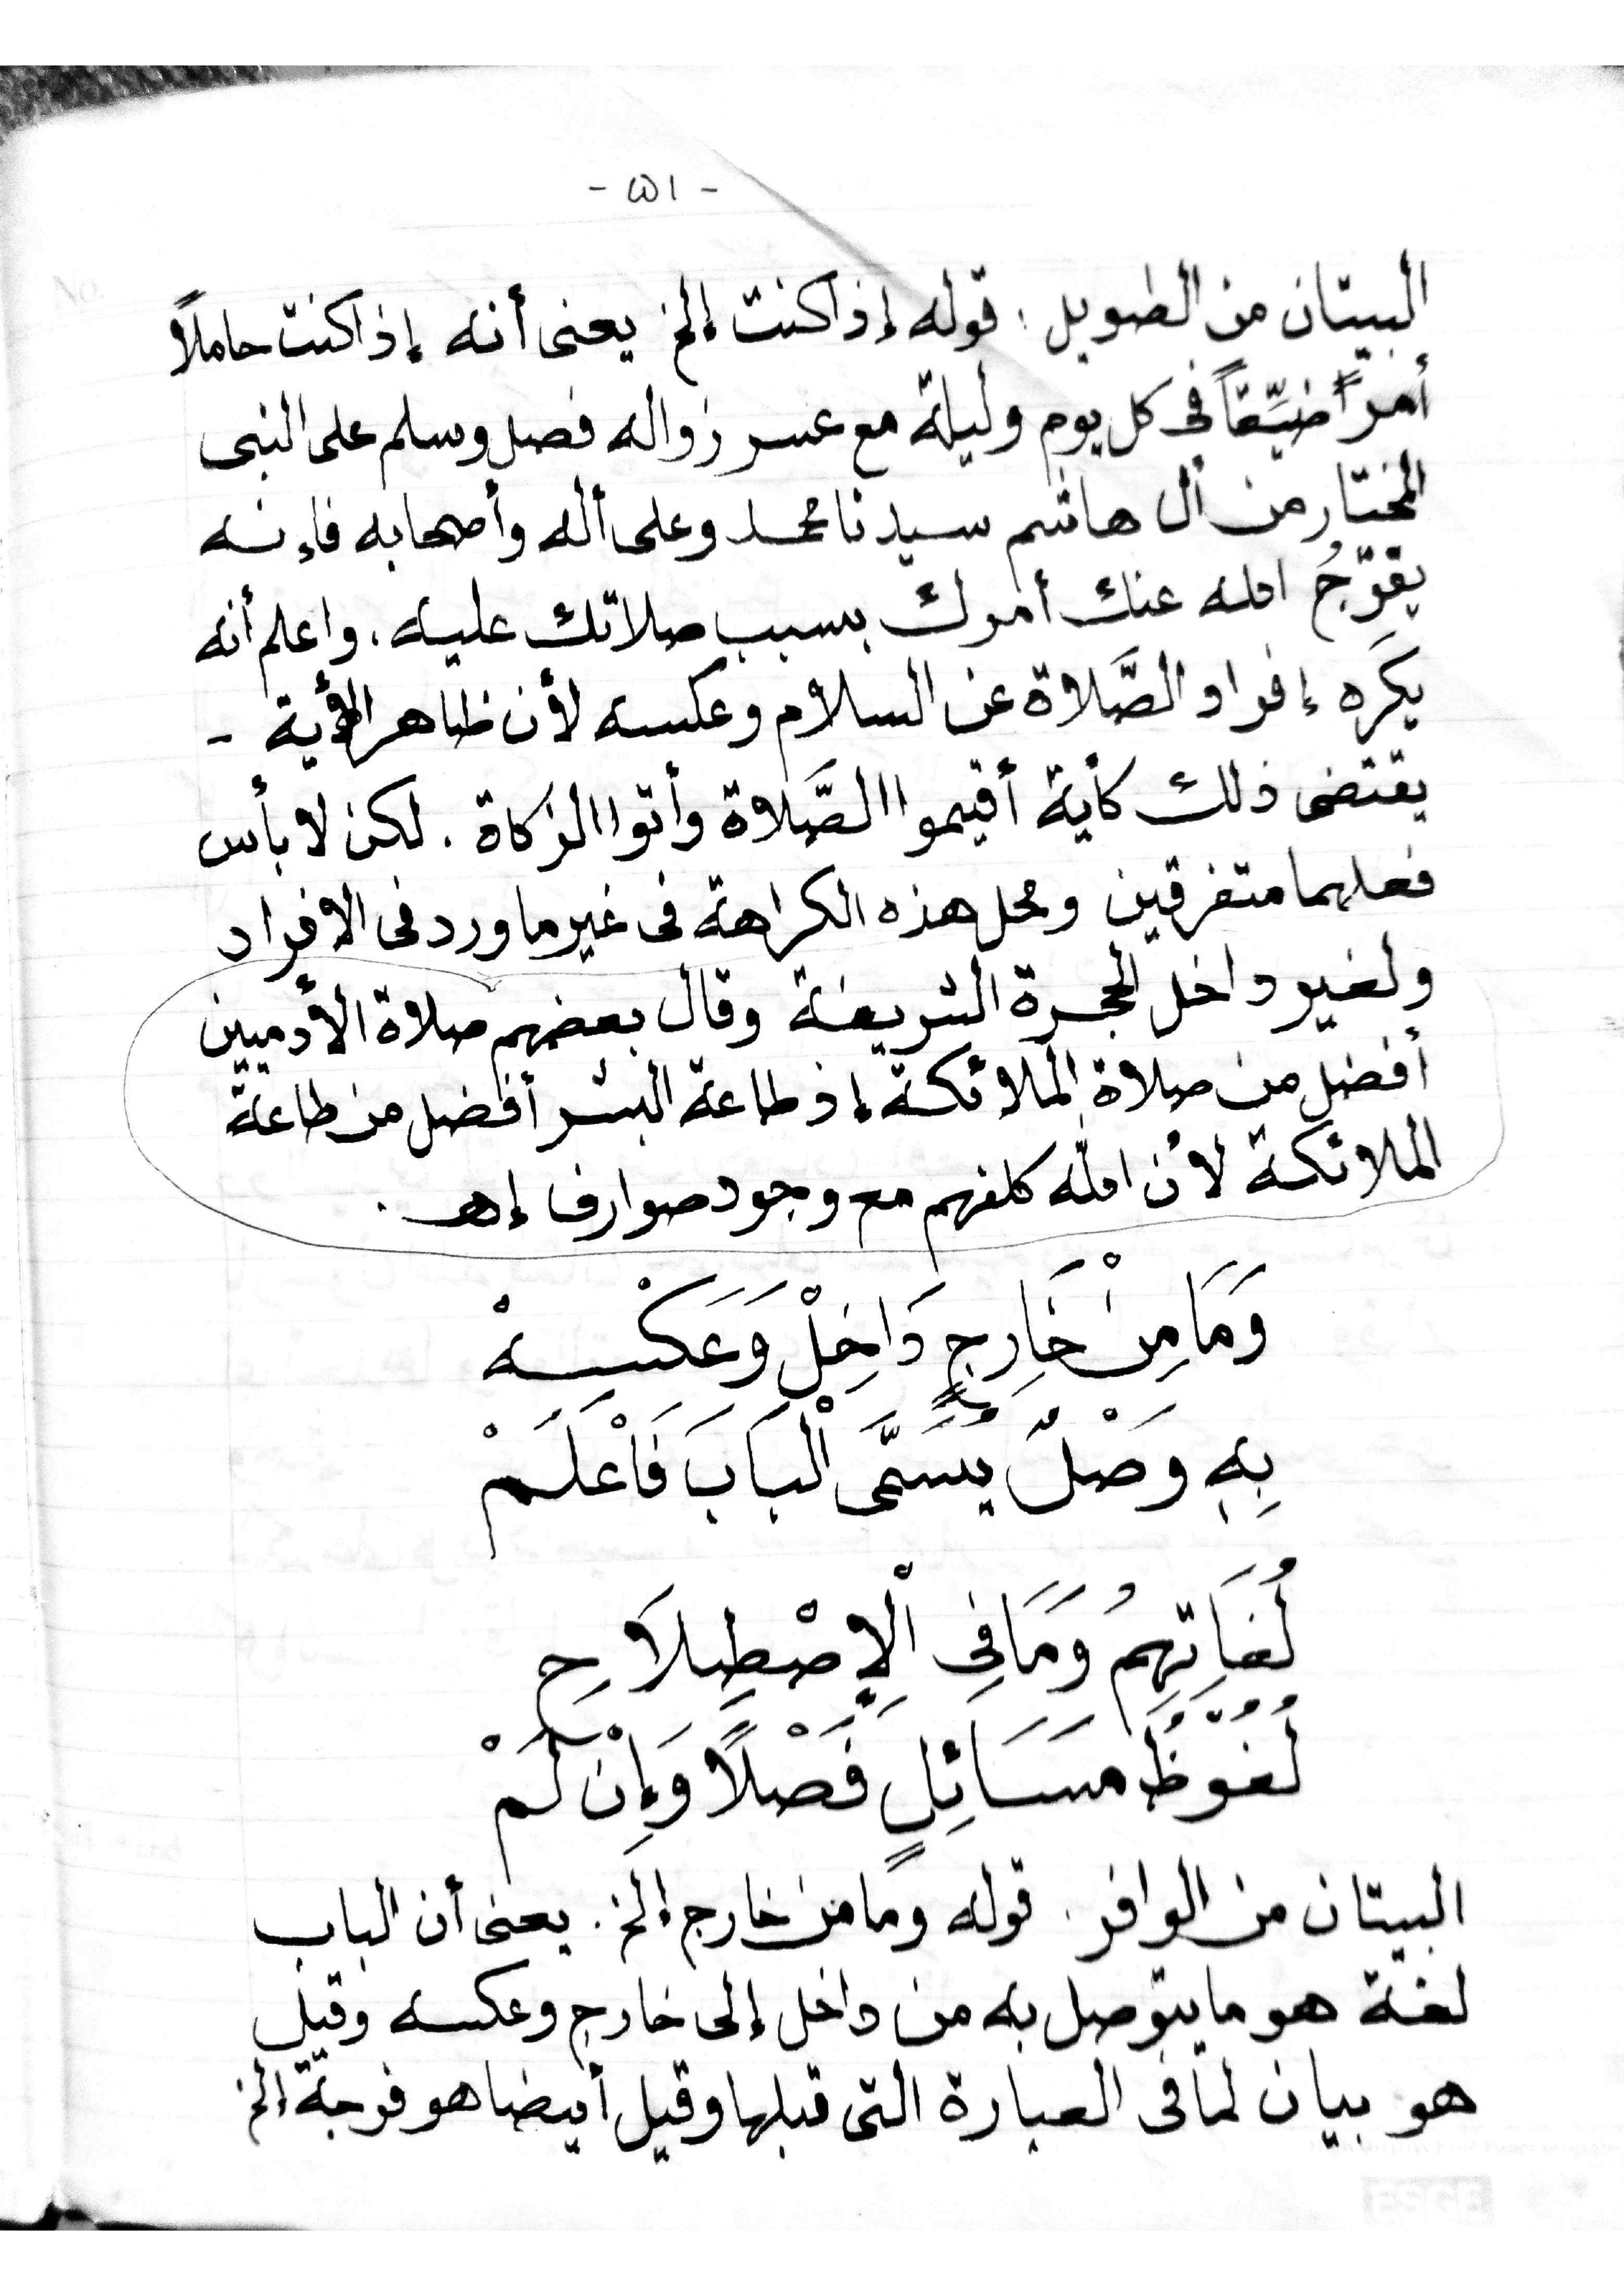 - ١٥ -
البيتان من الطويل . قوله إذا كنت إلخ يعنى أنه إذا كنت حاملاً
أمراً ضيِّقاً فى كل يوم وليلة مع عسر زواله فصل وسلم على النبى
المختار من أل هاشم سيدنا محمد وعلى أله وأصحابه فإنه
يفرّجُ الله عنك أمرك بسبب صلاتك عليه . واعلم أنه
يكره إفراد الصَّلاة عن السلام وعكسه لأن ظاهر الأية -
يقتضى ذلك كأية أقيموا الصَّلاة وأتوا الزكاة . لكن لا بأس
فعلهما متفرقين ومحل هذه الكراهة فى غير ما ورد فى الافراد
ولغير داخل الحجرة الشريفة وقال بعضهم صلاة الأدميين
أفضل من صلاة الملائكة إذ طاعة البشر أفضل من طاعة
الملائكة لأن الله كلفهم مع وجود صوارف إهـ .
وَمَا مِنْ خَارِجٍ دَاخِلْ وَعَكْسِهْ
بِهِ وَصْلٌ يُسَمَّى الْبَابَ فَاعْلَمْ
لُغَاتِهِمُ وَمَا فِى الْإِصْطِلَاحِ
لُفُوْظُ مَسَائِلٍ فَصْلًا وَإِنْ لَمْ
البيتان من الوافر . قوله وما من خارج إلخ . يعنى أن الباب
لغة هو ما يتوصل به من داخل إلى خارج وعكسه وقيل
هو بيان لما فى العبارة التى قبلها وقيل أيضا هو فرجة الخ